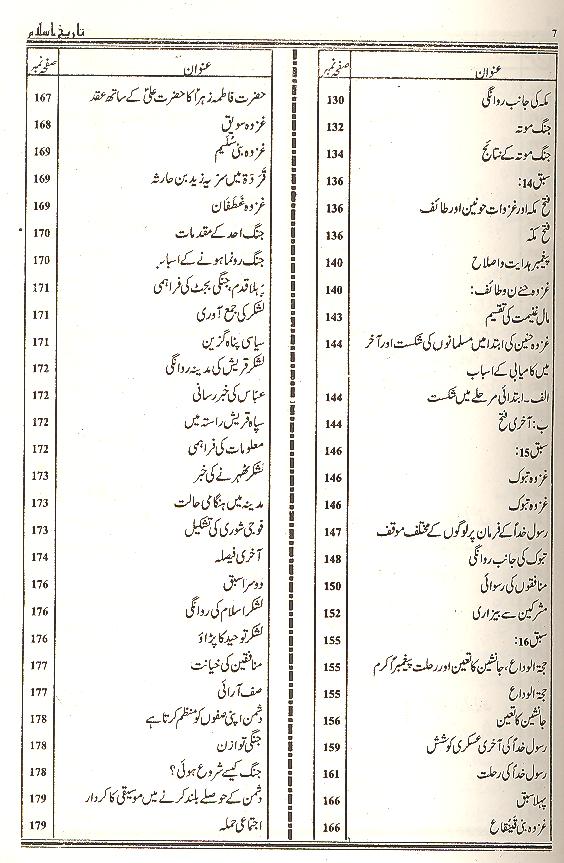 7
تاریخ اسلام
عنوان صفحہ نمبر
مکہ کی جانب روانگی 130
جنگ موتہ 132
جنگ موتہ کے نتائج 134
سبق14: 136
فتح مکہ اور غزوات حونین اور طائف 136
فتح مکہ 136
پیغمبر ہدایت و اصلاح 140
غزوہ حنین و طائف: 140
مال غنیمت کی تقسیم 143
غزوہ حنین کی ابتدا میں مسلمانوں کی شکست اور آخر
میں کامیابی کے اسباب 144
الف۔ ابتدائی مرحلے میں شکست 144
ب: آخری فتح 144
سبق15: 146
غزوہ تبوک 146
غزوہ تبوک 146
رسول خداؐ کے فرمان پر لوگوں کے مختلف موقف 147
تبوک کی جانب روانگی 148
منافقوں کی رسوائی 150
مشرکین سے بیزاری 152
سبق16: 155
حجۃ الوداع، جانشین کا تعین اور رحلت پیغمبر اکرمؐ 155
حجۃ الوداع 155
جانشین کا تعین 156
رسول خداؐ کی آخری عسکری کوشش 159
رسول خداؐ کی رحلت 161
پہلا سبق 166
غزوہ بنی قینقاع 166
عنوان صفحہ نمبر
حضرت فاطمہ زہراؑ کا حضرت علیؑ کے ساتھ عقد 167
غزوہ سویق 168
غزوہ بنی سُلیم 169
قَرَدَۃ میں سریہ زید بن حارثہ 169
غزوہ غَطَفَان 169
جنگ احد کے مقدمات 170
جنگ رونما ہونے کے اسباب 170
پہلا قدم، جنگی بجٹ کی فراہمی 171
لشکر کی جمع آوری 171
سیاسی پناہ گزین 171
لشکر قریش کی مدینہ روانگی 172
عباس کی خبر رسانی 172
سپاہ قریش راستہ میں 172
معلومات کی فراہمی 172
لشکر ٹھہرنے کی خبر 173
مدینہ میں ہنگامی حالت 173
فوجی شوریٰ کی تشکیل 173
آخری فیصلہ 174
دوسرا سبق 176
لشکر اسلام کی روانگی 176
لشکر توحید کا پڑاؤ 176
منافقین کی خیانت 177
صف آرائی 177
دشمن اپنی صفوں کو منظم کرتا ہے 178
جنگی توازن 178
جنگ کیسے شروع ہوئی؟ 178
دشمن کے حوصلے بلند کرنے میں موسیقی کا کردار 179
اجتماعی حملہ 179